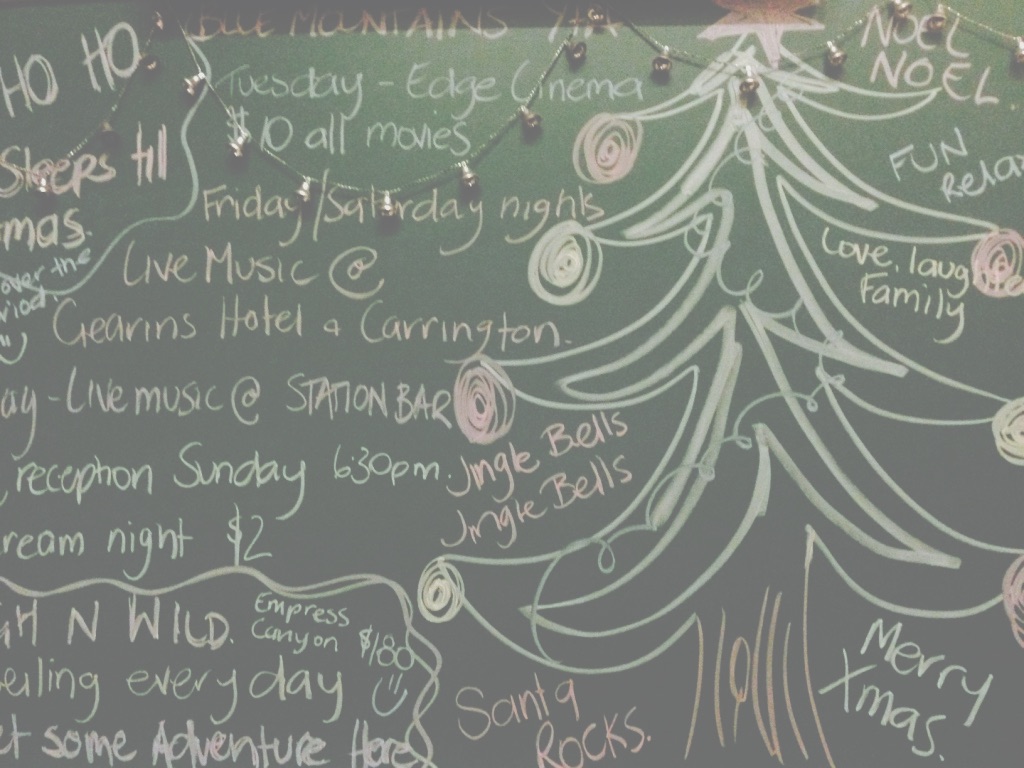 BLUE MOUNTAINS YHA
HO HO
Tuesday - Edge Cinema
$10 all movies
Sleeps till
mas.
over the
Friday/Saturday nights
Live Music @
Gearins Hotel & Carrington.
ay - Live music @ STATION BAR
reception Sunday 6:30pm.
ream night $2
GH N WILD.
Empress
Canyon $180
eiling everyday
et some Adventure Here
NOEL
NOEL.
FUN
Relax
Love, laughter
Family
Jingle Bells
Jingle Bells
Santa
ROCKS.
Merry
Xmas.